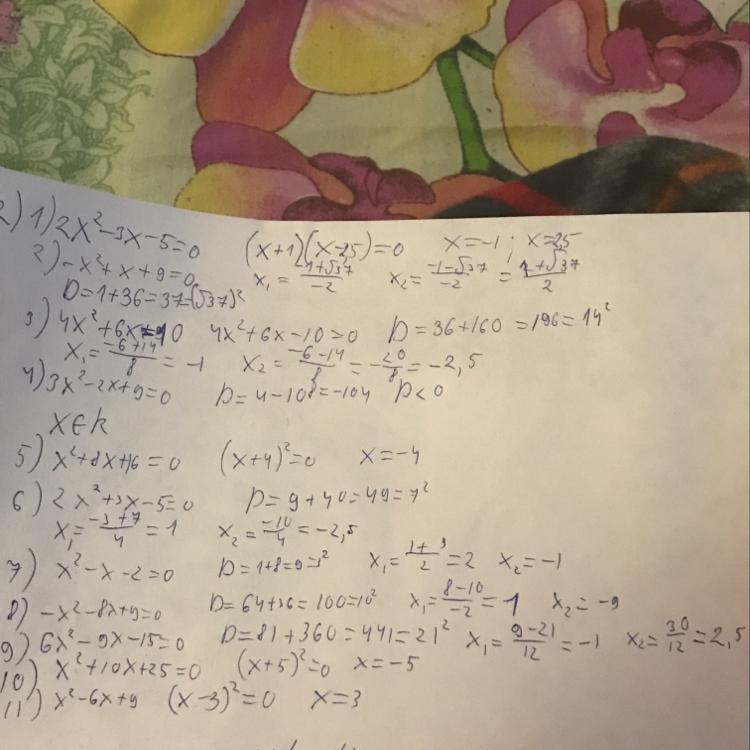 2) 1) 2x²-3x-5=0 (x+1)(x-2,5)=0 x=-1; x=2,5
2) -x²+x+9=0 x₁=(1+√37)/-2 x₂=(-1-√37)/-2=(1+√37)/2
D=1+36=37=(√37)²
3) 4x²+6x=10 4x²+6x-10=0 D=36+160=196=14²
x₁=(-6+14)/8=-1 x₂=(-6-14)/8=-20/8=-2,5
4) 3x²-2x+9=0 D=4-108=-104 D<0
x∈R
5) x²+8x+16=0 (x+4)²=0 x=-4
6) 2x²+3x-5=0 D=9+40=49=7²
x₁=(-3+7)/4=1 x₂=-10/4=-2,5
7) x²-x-2=0 D=1+8=9=3² x₁=(1+3)/2=2 x₂=-1
8) -x²-8x+9=0 D=64+36=100=10² x₁=(8-10)/-2=1 x₂=-9
9) 6x²-9x-15=0 D=81+360=441=21² x₁=(9-21)/12=-1 x₂=30/12=2,5
10) x²+10x+25=0 (x+5)²=0 x=-5
11) x²-6x+9 (x-3)²=0 x=3